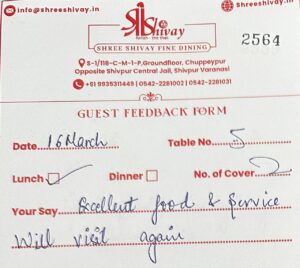 info@shreeshivay.in
shreeshivay.in
Shree Shivay
SHREE SHIVAY FINE DINING
2564
S-1/118-C-M-1-P,Groundfloor, Chuppeypur
Opposite Shivpur Central Jail, Shivpur Varanasi
+91 9935311449 | 0542-2281002 | 0542-2281031
GUEST FEEDBACK FORM
Date....16 March Table No....5
Lunch ✓ Dinner No. of Cover...2
Your Say....Excellent food & service
Will visit again